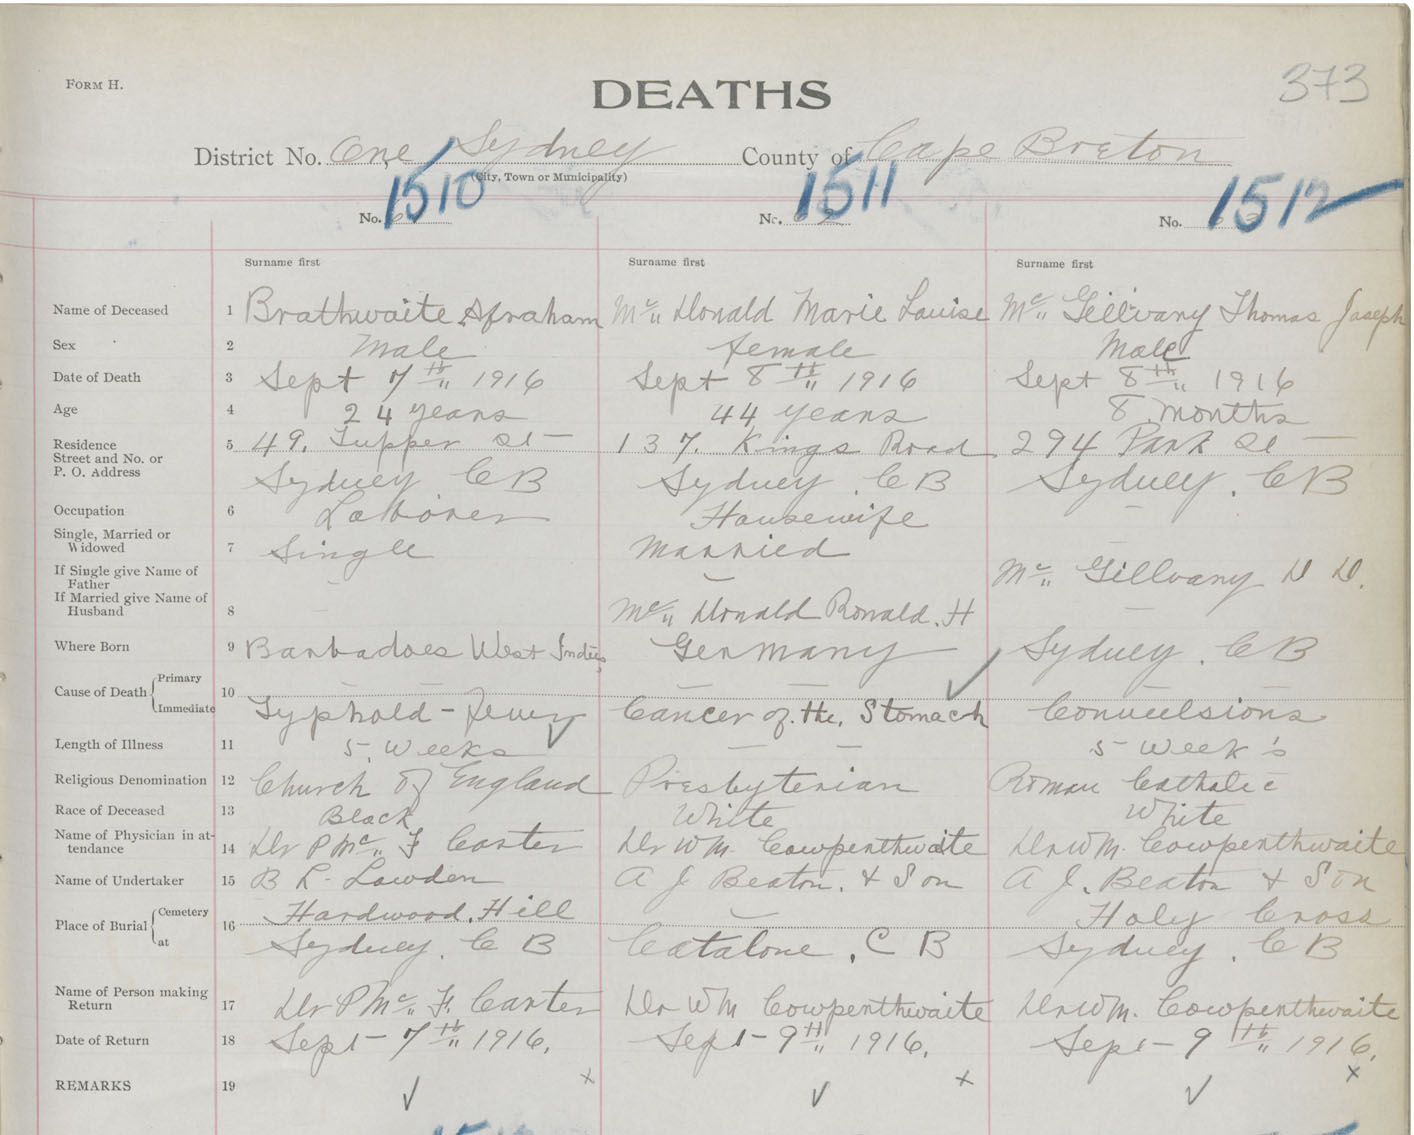 FORM H.
DEATHS
373
District No. One, Sydney County of Cape Breton
(City, Town or Municipality)
1510 1511 1512
No. No. 62 No.
Surname first Surname first Surname first
Name of Deceased 1 Brathwaite Afraham Mc„ Donald Marie Louise Mc„ Gillvany Thomas Joseph
Sex 2 Male female Male
Date of Death 3 Sept 7th„ 1916 Sept 8th„ 1916 Sept 8th„ 1916
Age 4 24 years 44 years 8 months
Residence Street and No. or P. O. Address 5 49. Tupper St 137. Kings Road 294 Park St
Sydney. C B Sydney. C B Sydney. C B
Occupation 6 Laborer Housewife –
Single, Married or Widowed 7 Single Married –
If Single give Name of Father – – Mc„ Gillvany D D.
If Married give Name of Husband 8 – Mc„ Donald Ronald. H –
Where Born 9 Barbadoes West Indies Germany Sydney. C B
Cause of Death Primary 10 – – – – – –
Immediate Typhoid - fever Cancer of. the. Stomach Convulsions
Length of Illness 11 5 Weeks – – 5 Week's
Religious Denomination 12 Church of England Presbyterian Roman Catholic
Race of Deceased 13 Black White White
Name of Physician in attendance 14 Dr P Mc„ F Carter Dr W M. Cowpenthwaite Dr W M. Cowpenthwaite
Name of Undertaker 15 B L. Lowden A J Beaton. & Son A J. Beaton & Son
Place of Burial Cemetery 16 Hardwood. Hill – Holy Cross
at Sydney. C B Catalone. C B Sydney. C B
Name of Person making Return 17 Dr P Mc„ F. Carter Dr W M Cowpenthwaite Dr W M. Cowpenthwaite
Date of Return 18 Sept- 7th„ 1916. Sept- 9th„ 1916. Sept- 9th„ 1916.
REMARKS 19 ✓ x ✓ x ✓ x